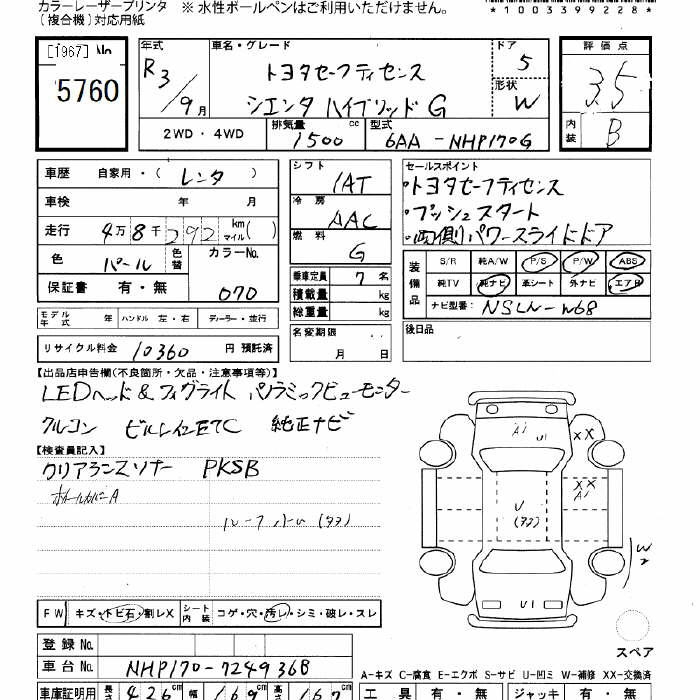 カラーレーザープリンタ ※ 水性ボールペンはご利用いただけません。
(複合機)対応用紙
*1003399228*
[1967] No. 5760
年式 R3/9月
車名・グレード トヨタセーフティセンス
シエンタ ハイブリッド G
ドア 5
形状 W
評価点 3.5
内装 B
2WD・4WD 排気量 1500 cc 型式 6AA-NHP170G
車歴 自家用・(レンタ)
車検 年 月
走行 4万8千292 km マイル( )
色 パール 色替 カラーNo. 070
保証書 有・無
モデル年式 年 ハンドル 左・右 ディーラー・並行
リサイクル料金 10360 円 預託済
シフト 1AT
冷房 AAC
燃料 G
乗車定員 7 名
積載量 kg
総重量 kg
名変期限 月 日
セールスポイント
・トヨタセーフティセンス
・プッシュスタート
・両側パワースライドドア
装備品 S/R 純A/W P/S P/W ABS
純TV 純ナビ 革シート 外ナビ エアB
ナビ型番: NSLN-W68
後日品
【出品店申告欄(不良箇所・欠品・注意事項等)】
LEDヘッド&フォグライト パノラミックビューモニター
クルコン ビルトインETC 純正ナビ
【検査員記入】
クリアランスソナー PKSB
ホイールカバーA
A1 U1 XX
XX A1
U
W2
U1
スペア
FW キズ・トビ石・割レX シート内装 コゲ・穴・汚レ・シミ・破レ・スレ
登録 No.
車台 No. NHP170-7249368
A-キズ C-腐食 E-エクボ S-サビ U-凹ミ W-補修 XX-交換済
車庫証明用 長さ 426 cm 幅 169 cm 高さ 167 cm
工具 有・無 ジャッキ 有・無